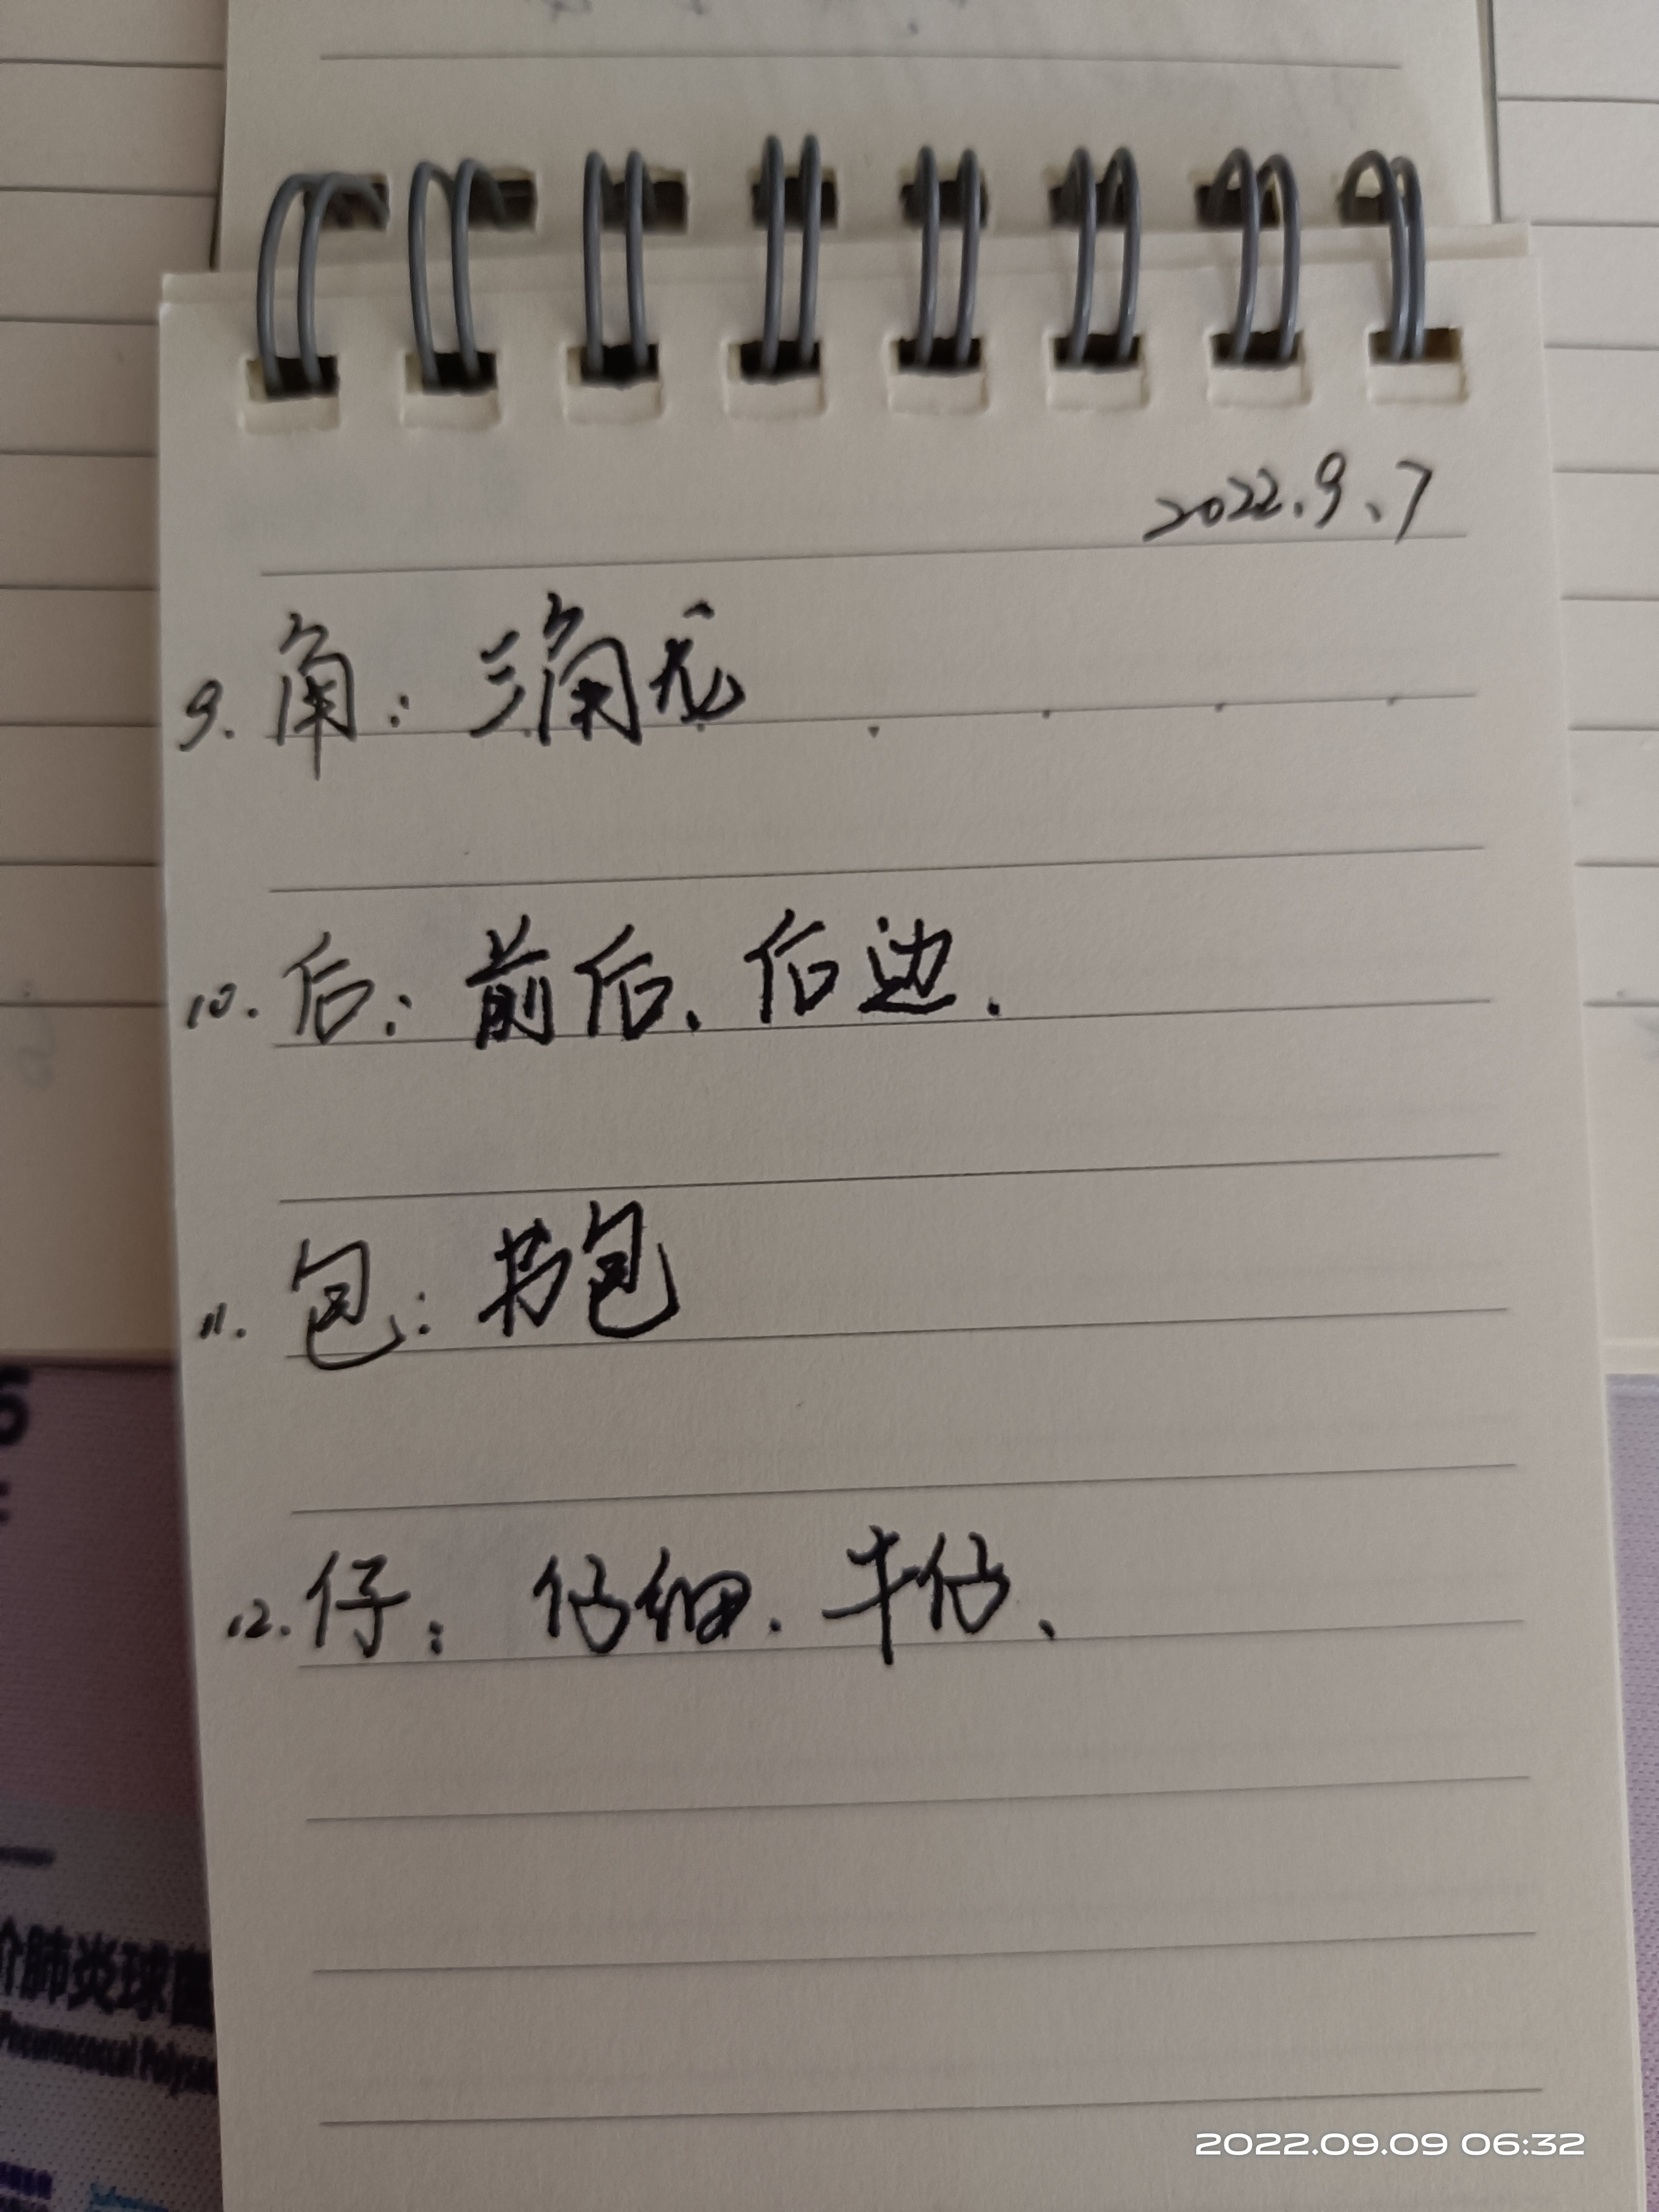 2022.9、7
9. 角：三角龙
10. 后：前后、后边.
11. 包：书包
12. 仔：仔细. 牛仔、
价肺炎球菌
Pneumococcal Polysac
2022.09.09 06:32